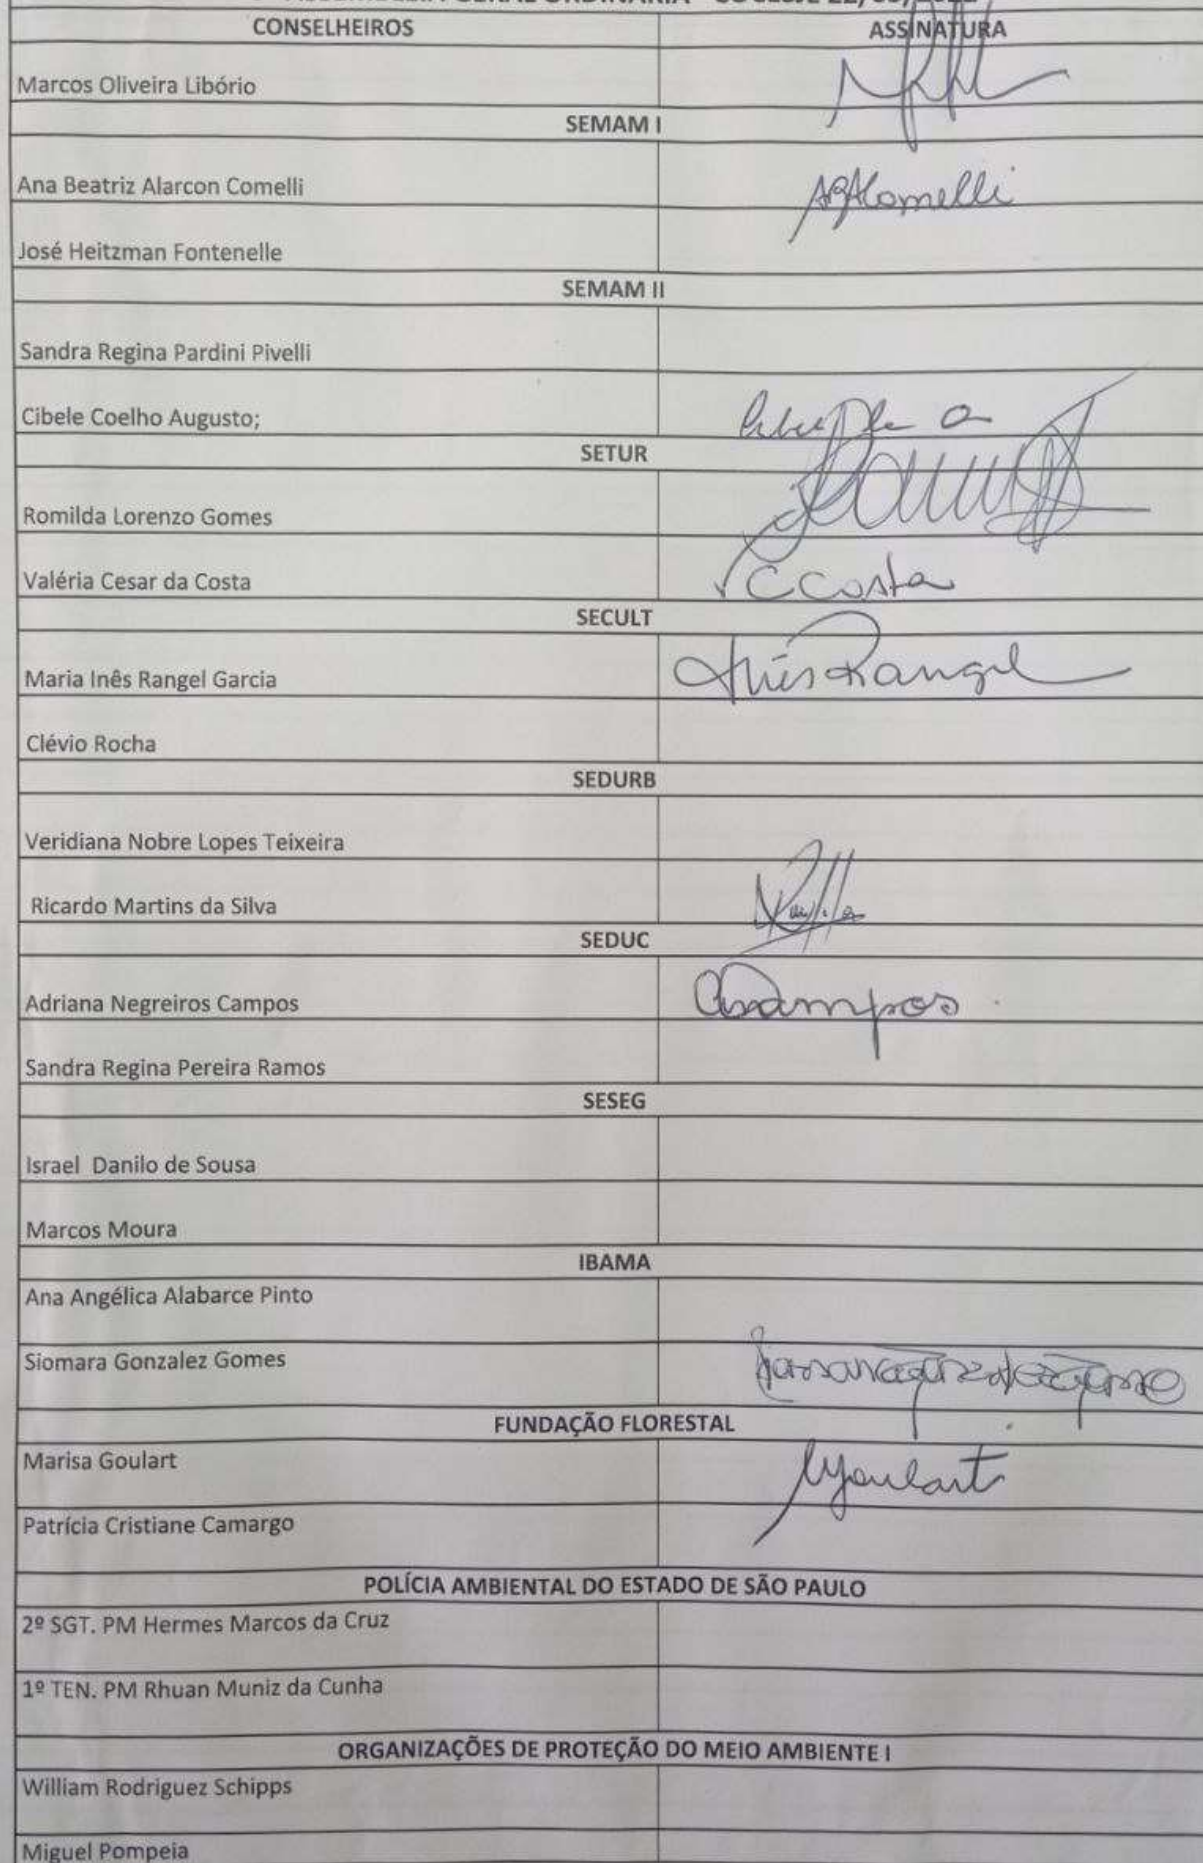 CONSELHEIROS ASSINATURA
Marcos Oliveira Libório
SEMAM I
Ana Beatriz Alarcon Comelli ABAComelli
José Heitzman Fontenelle
SEMAM II
Sandra Regina Pardini Pivelli
Cibele Coelho Augusto;
SETUR
Romilda Lorenzo Gomes
Valéria Cesar da Costa VCCosta
SECULT
Maria Inês Rangel Garcia Inês Rangel
Clévio Rocha
SEDURB
Veridiana Nobre Lopes Teixeira
Ricardo Martins da Silva
SEDUC
Adriana Negreiros Campos
Sandra Regina Pereira Ramos
SESEG
Israel Danilo de Sousa
Marcos Moura
IBAMA
Ana Angélica Alabarce Pinto
Siomara Gonzalez Gomes
FUNDAÇÃO FLORESTAL
Marisa Goulart MGoulart
Patrícia Cristiane Camargo
POLÍCIA AMBIENTAL DO ESTADO DE SÃO PAULO
2º SGT. PM Hermes Marcos da Cruz
1º TEN. PM Rhuan Muniz da Cunha
ORGANIZAÇÕES DE PROTEÇÃO DO MEIO AMBIENTE I
William Rodriguez Schipps
Miguel Pompeia